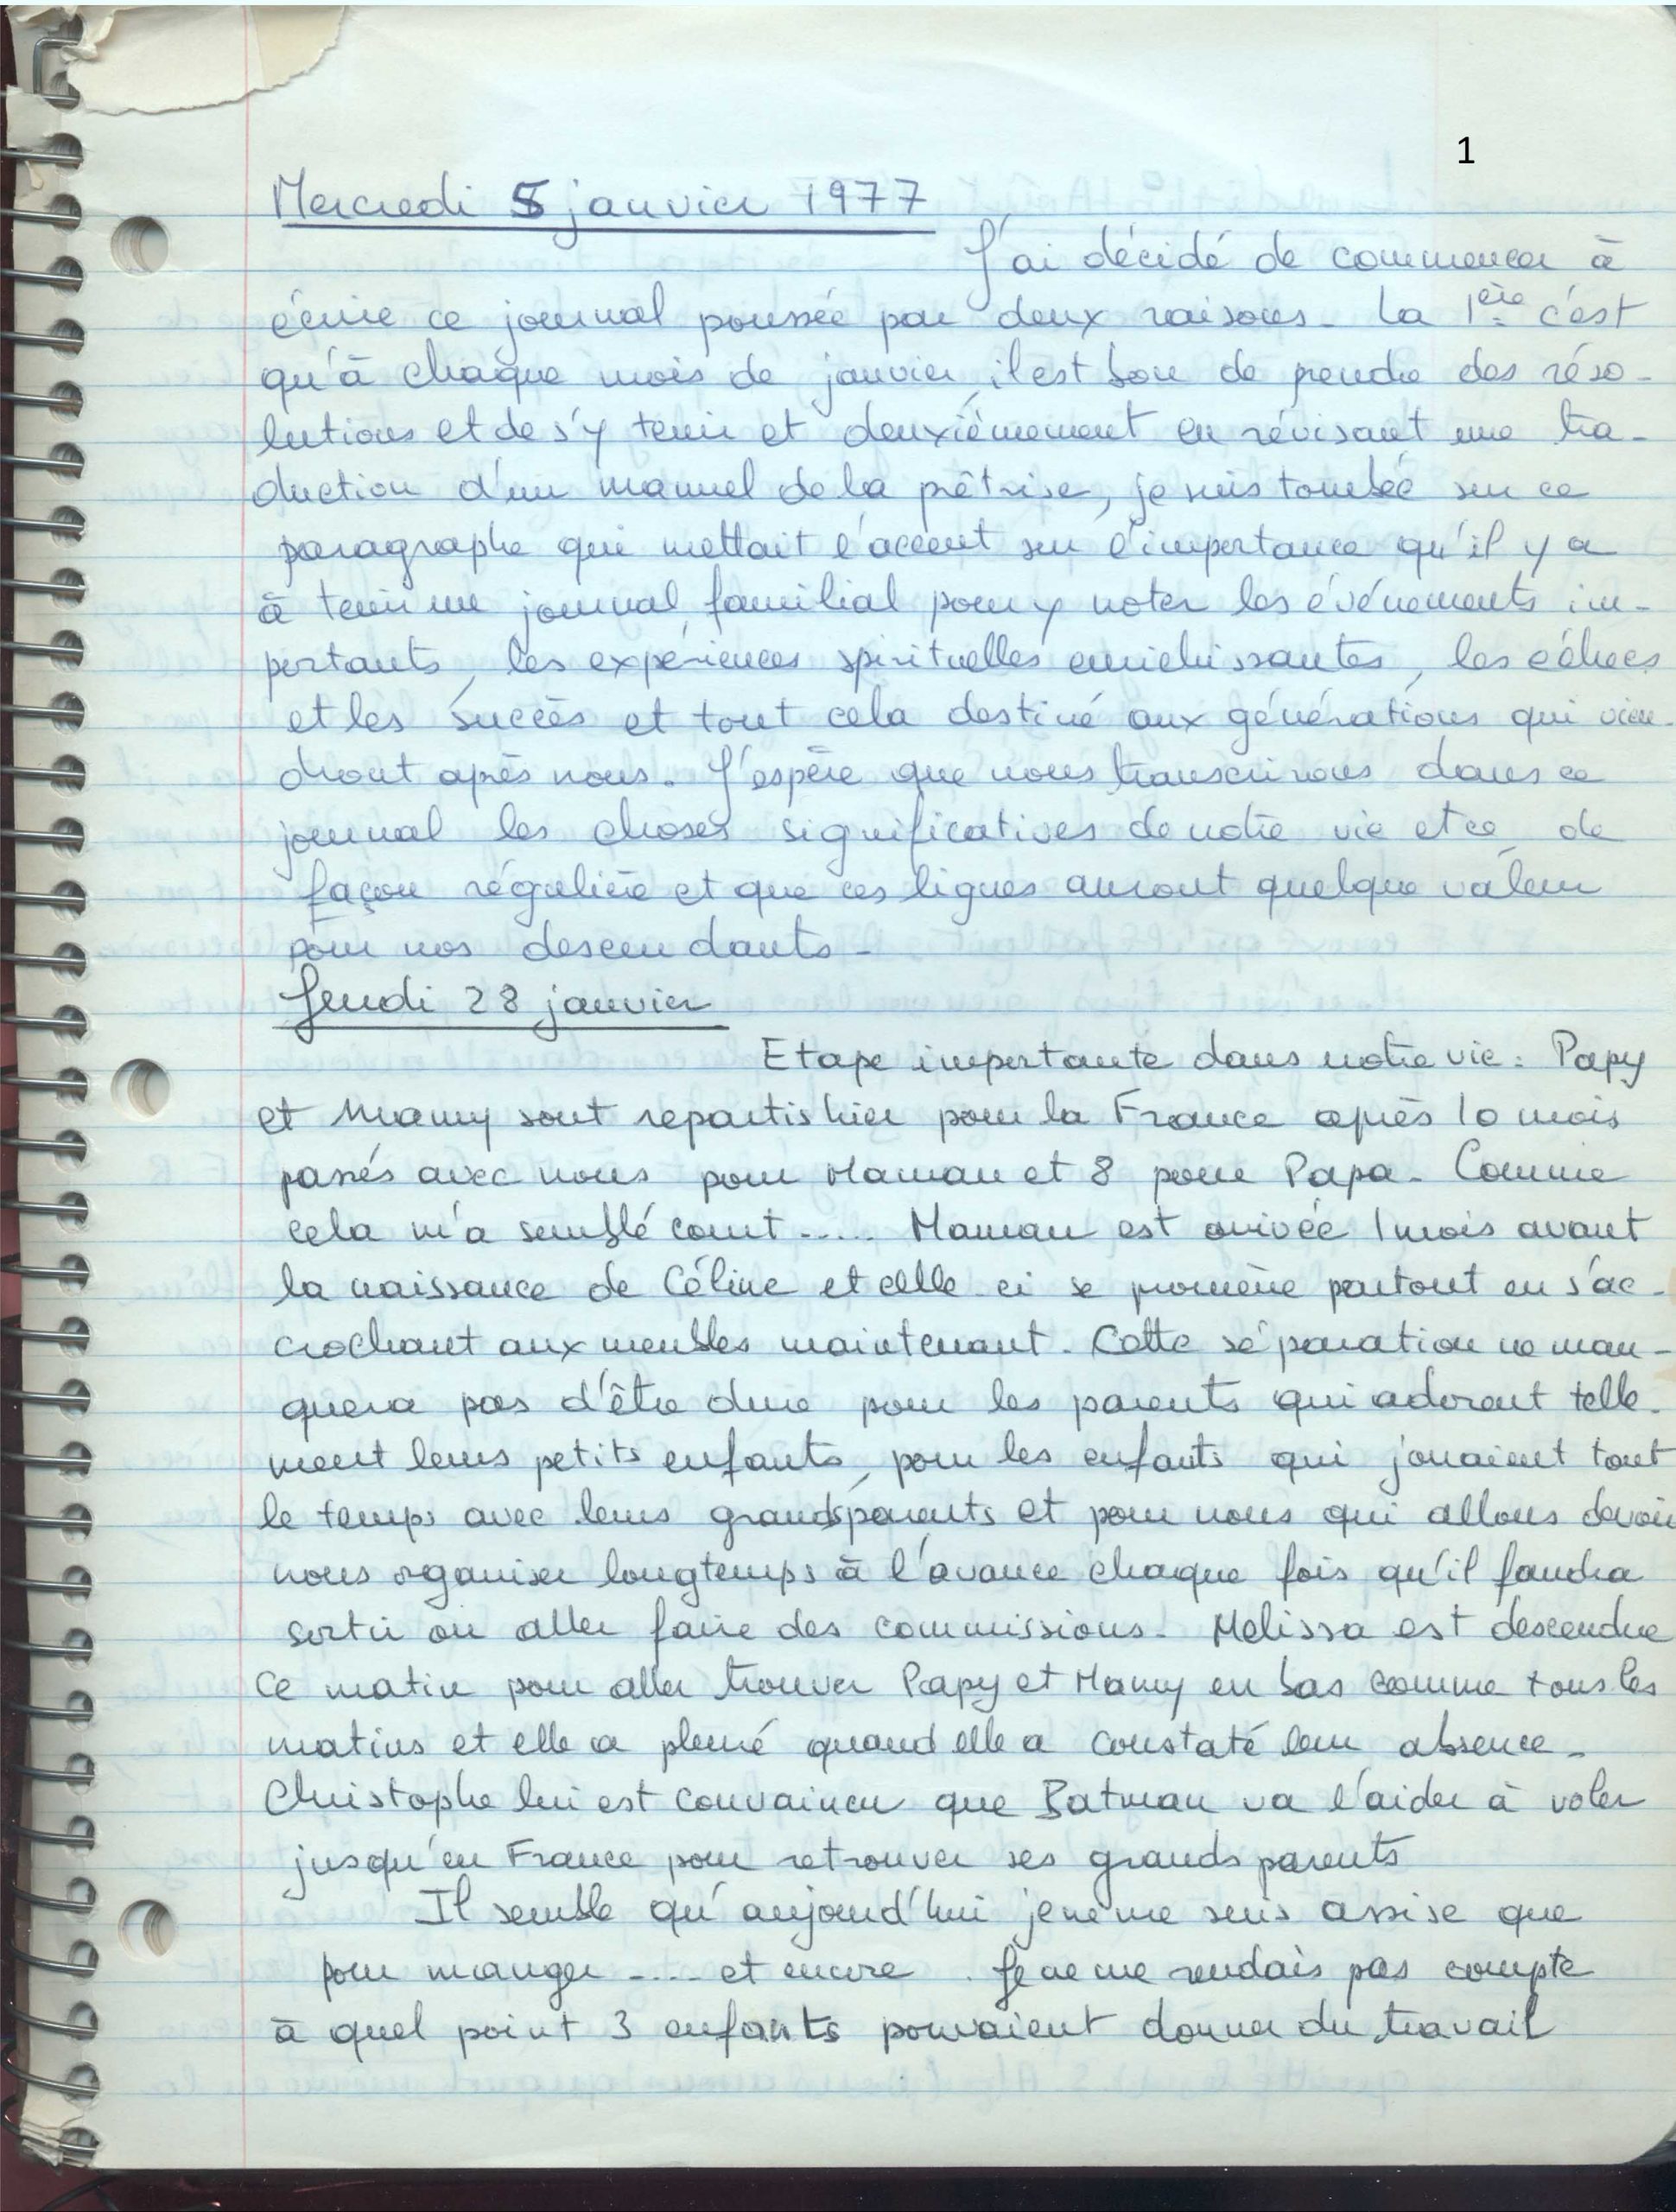 1
Mercredi 5 janvier 1977
J'ai décidé de commencer à
écrire ce journal poussée par deux raisons. La 1ère c'est
qu'à chaque mois de janvier, il est bon de prendre des réso-
lutions et de s'y tenir et deuxièmement en révisant une tra-
duction d'un manuel de la prêtrise, je suis tombée sur ce
paragraphe qui mettait l'accent sur l'importance qu'il y a
à tenir un journal familial pour y noter les événements im-
portants, les expériences spirituelles enrichissantes, les échecs
et les succès et tout cela destiné aux générations qui vien-
dront après nous. J'espère que nous transcrirons dans ce
journal les choses significatives de notre vie et ce de
façon régulière et que ces lignes auront quelque valeur
pour nos descendants.
Jeudi 28 janvier
Etape importante dans notre vie : Papy
et Mamy sont repartis hier pour la France après 10 mois
passés avec nous pour Maman et 8 pour Papa. Comme
cela m'a semblé court..... Maman est arrivée 1 mois avant
la naissance de Céline et celle ci se promène partout en s'ac-
crochant aux meubles maintenant. Cette séparation ne man-
quera pas d'être dure pour les parents qui adorent telle-
ment leurs petits enfants, pour les enfants qui jouaient tout
le temps avec leurs grands parents et pour nous qui allons devoir
nous organiser longtemps à l'avance chaque fois qu'il faudra
sortir ou aller faire des commissions. Melissa est descendue
ce matin pour aller trouver Papy et Mamy en bas comme tous les
matins et elle a pleuré quand elle a constaté leur absence.
Christophe lui est convaincu que Batman va l'aider à voler
jusqu'en France pour retrouver ses grands parents
Il semble qu'aujourd'hui je ne me suis assise que
pour manger .... et encore. Je ne me rendais pas compte
à quel point 3 enfants pouvaient donner du travail